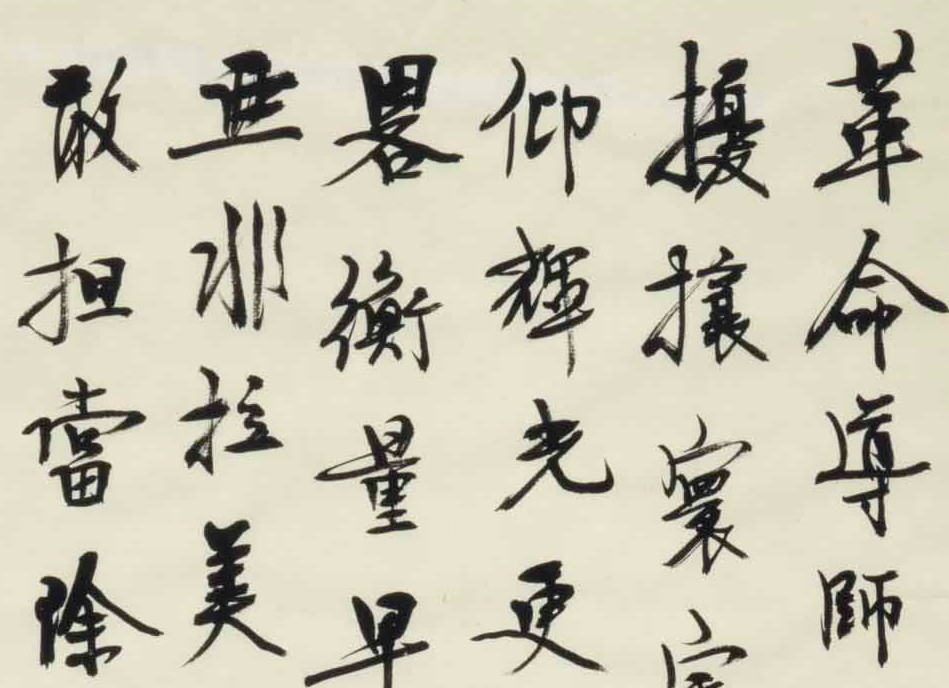 革命導師
擾攘寰
仰輝光更
畧衡量早
亚非拉美
敢担當除